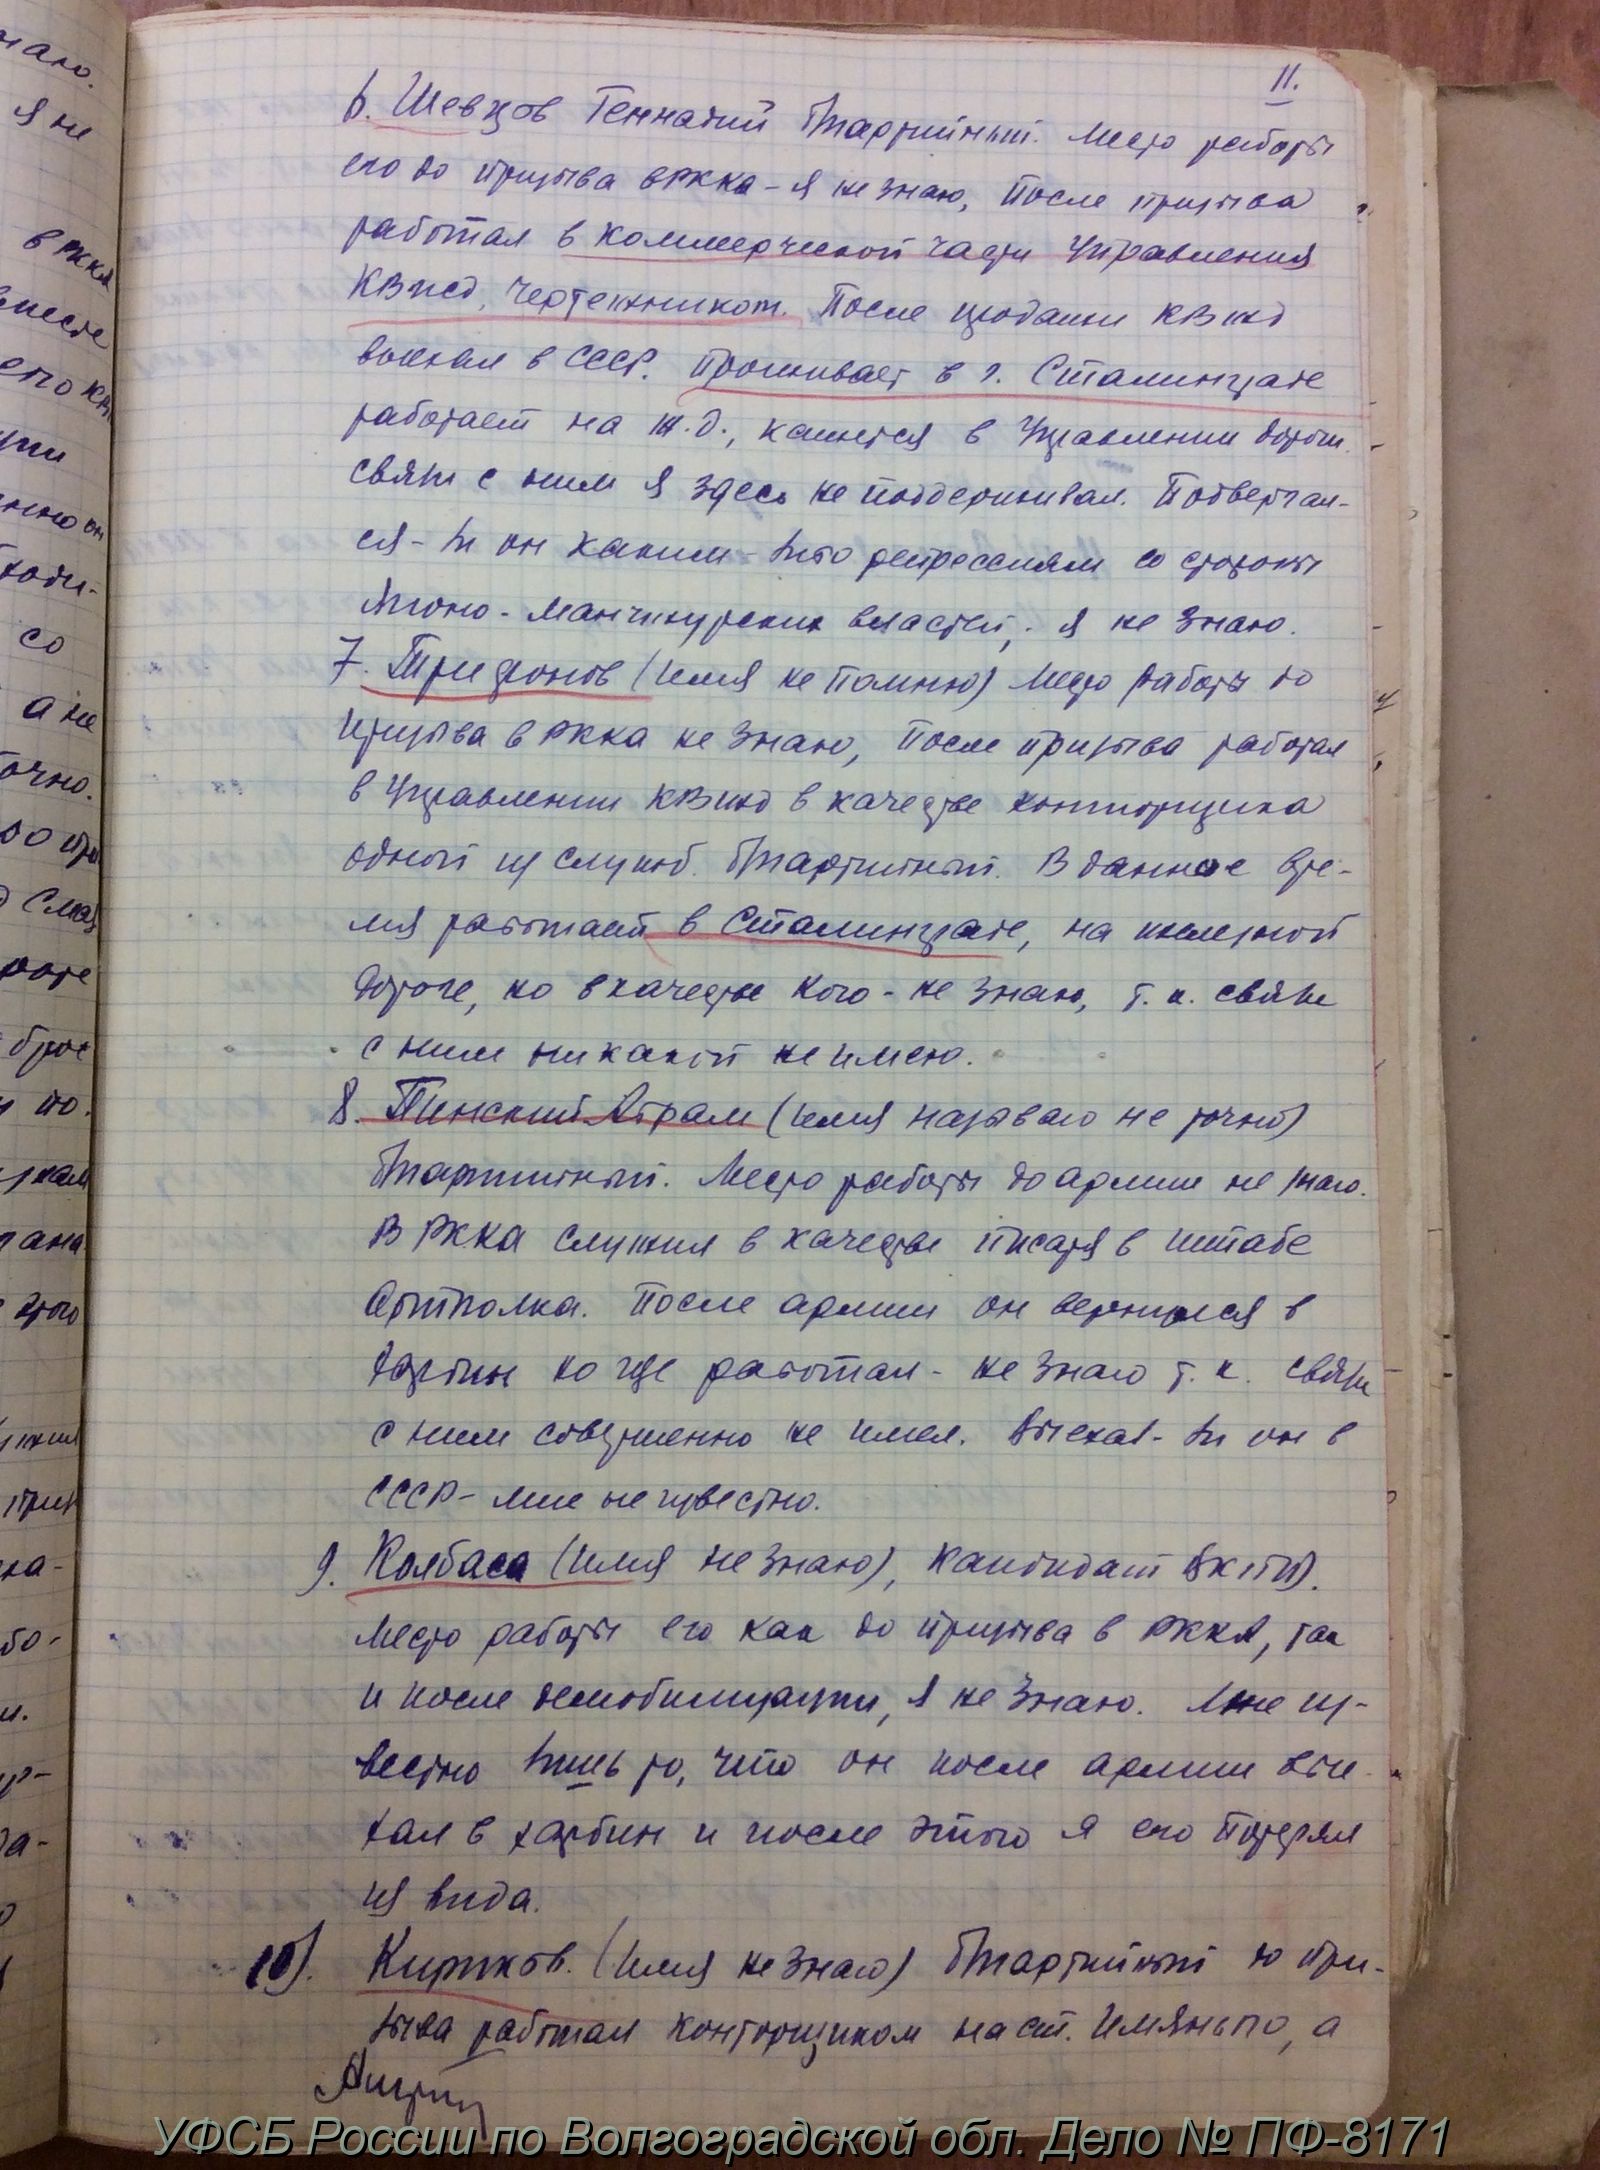 11.
6. Шевцов Геннадий б/партийный. Место работы
его до призыва в РККА - я не знаю, после призыва
работал в коммерческой части Управления
КВжд, чертежником. После продажи КВжд
выехал в СССР. Проживает в г. Сталинграде
работает на ж.д., кажется в Управлении дороги.
связи с ним я здесь не поддерживал. Подвергал-
ся-ли он каким-либо репрессиям со стороны
Японо-Манчжурских властей, я не знаю.
7. Трифонов (имя не помню) место работы до
призыва в РККА не знаю, после призыва работал
в Управлении КВжд в качестве конторщика
одной из служб. б/партийный. В данное вре-
мя работает в Сталинграде, на железной
дороге, но в качестве кого - не знаю, т.к. связи
с ним никакой не имею.
8. Пинский Абрам (имя называю не точно)
б/партийный. Место работы до армии не знаю.
В РККА служил в качестве писаря в штабе
Артполка. После армии он вернулся в
Харбин но где работал - не знаю т.к. связи
с ним совершенно не имел. Выехал-ли он в
СССР - мне неизвестно.
9. Колбаса (имя не знаю), кандидат ВКП(б).
Место работы его как до призыва в РККА, так
и после демобилизации, я не знаю. Мне из-
вестно лишь то, что он после армии вые-
хал в Харбин и после этого я его потерял
из вида.
10). (имя не знаю) б/партийный до при-
зыва работал конторщиком на ст. Имяньпо, а
УФСБ России по Волгоградской обл. Дело № ПФ-8171